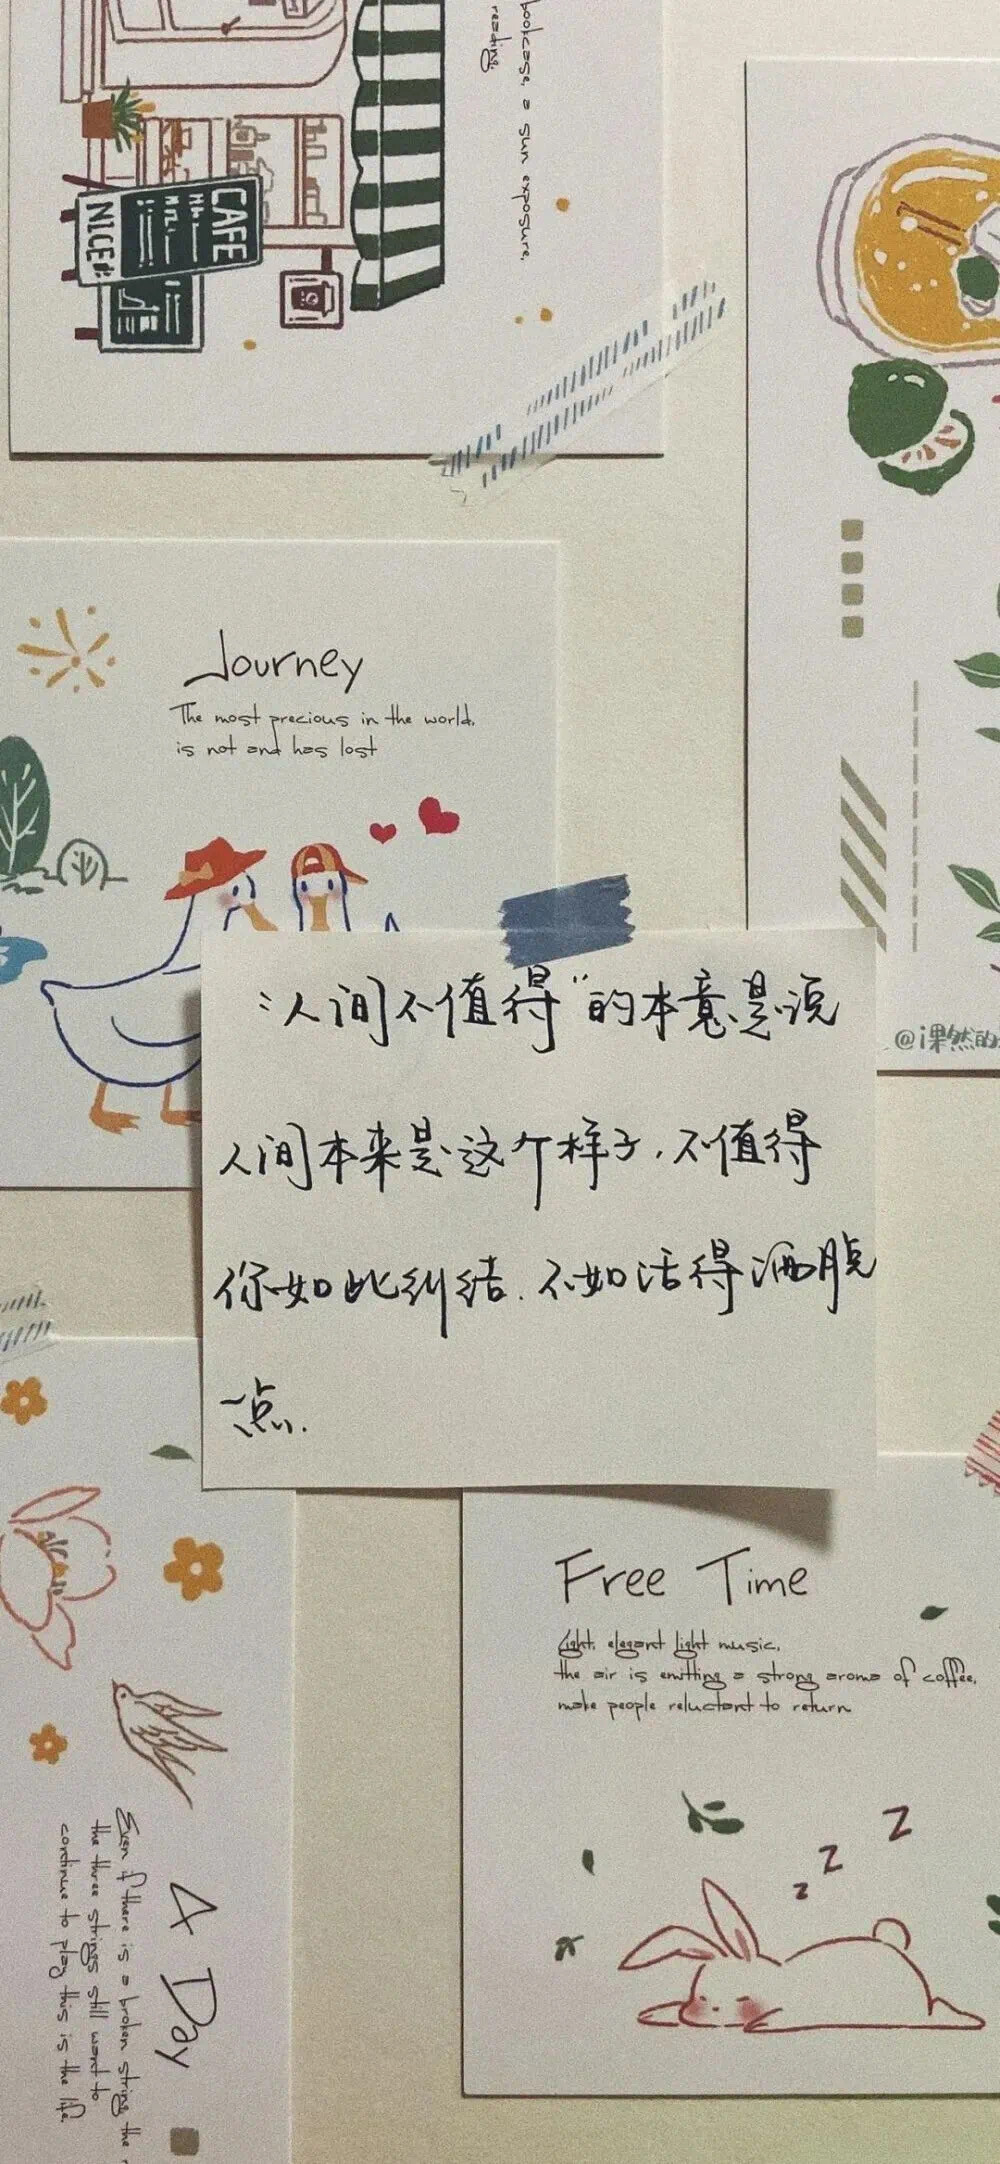 bookcase, a sun exposure,
reading.
CAFE
NICE
Journey
The most precious in the world,
is not and has lost
@i课然的
“人间不值得”的本意是说
人间本来是这个样子，不值得
你如此纠结，不如活得洒脱
一点.
Free Time
Light, elegant light music,
the air is emitting a strong aroma of coffee,
make people reluctant to return
z
z
z
A Day
Even if there is a broken string the
the three strings still want to
continue to play this is the life.